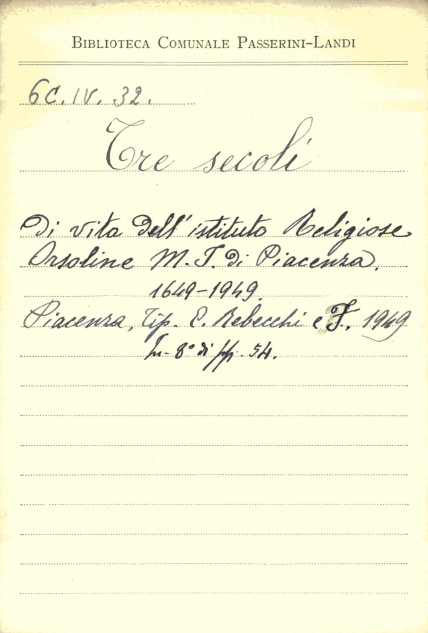 BIBLIOTECA COMUNALE PASSERINI-LANDI
6C.IV. 32.
Tre secoli
di vita dell'istituto Religiose
Orsoline M. I. di Piacenza.
1649-1949.
Piacenza, Tip. E. Rebecchi e F., 1949
In-8° di pp. 54.